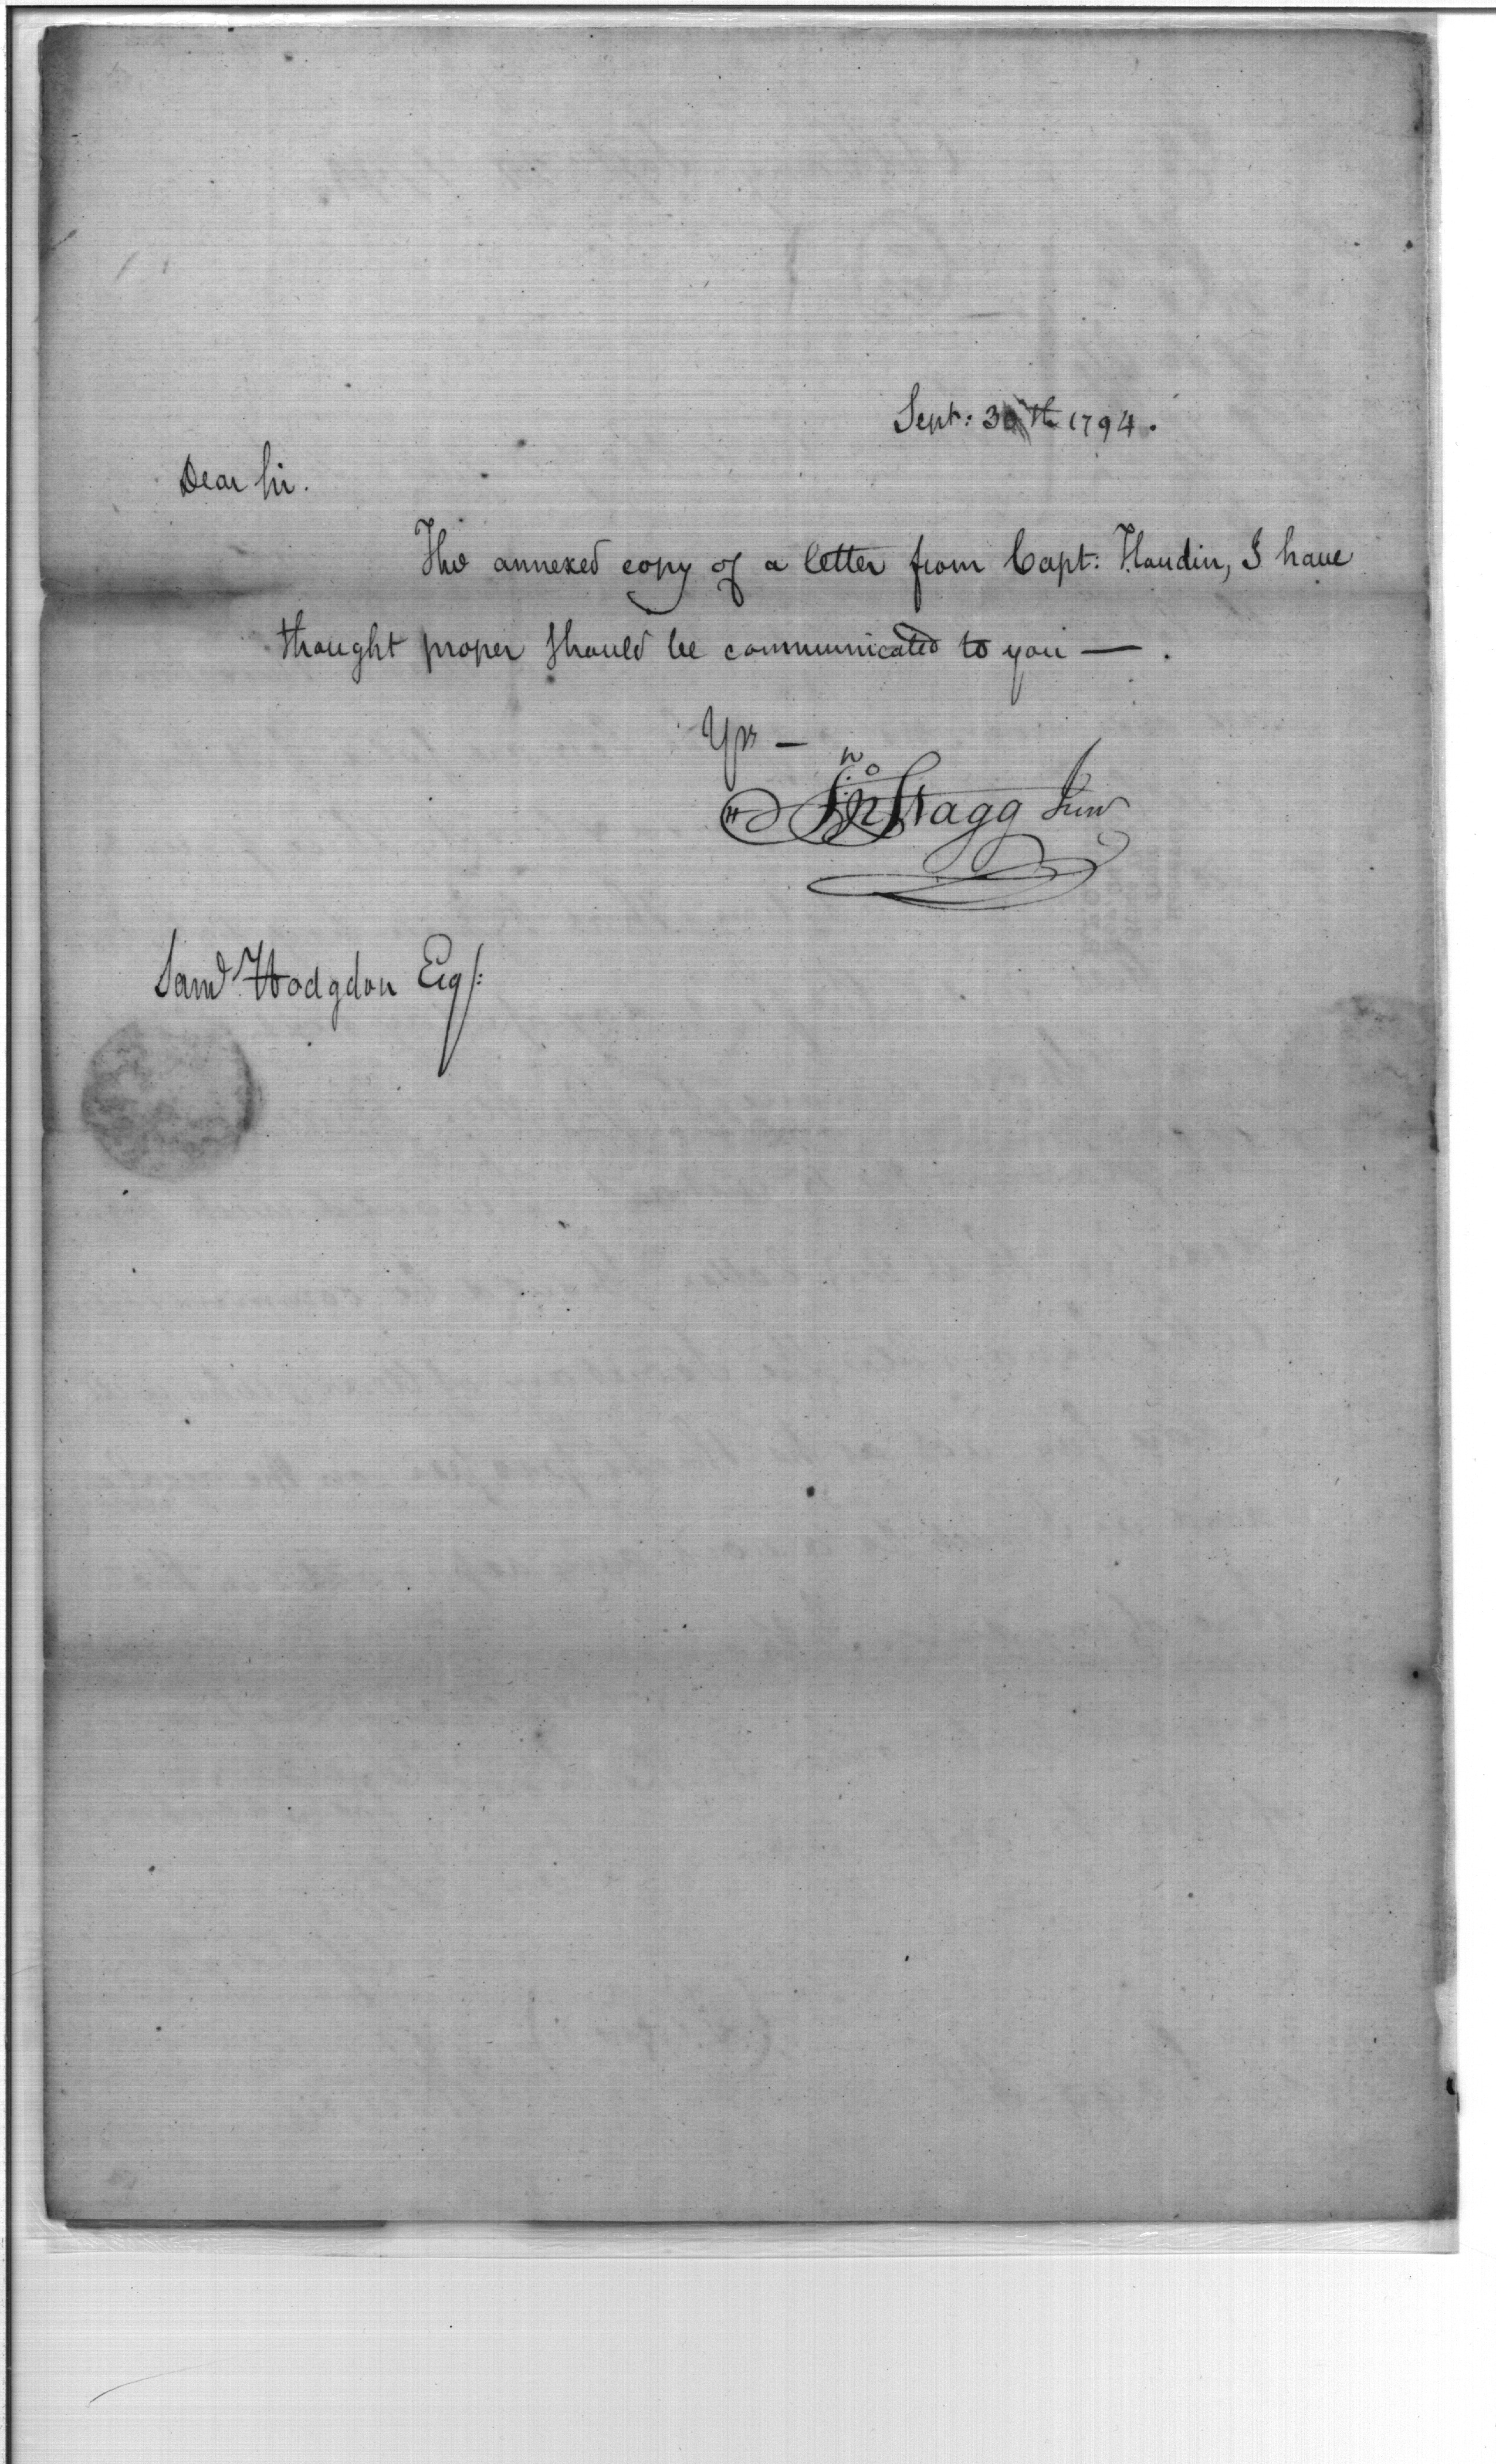 Sept: 30th 1794.
Dear Sir.
The annexed copy of a letter from Capt: Haudin, I have
thought proper should be communicated to you — .
Yrs —
Jno Stagg Junr
Saml Hodgdon Esq: